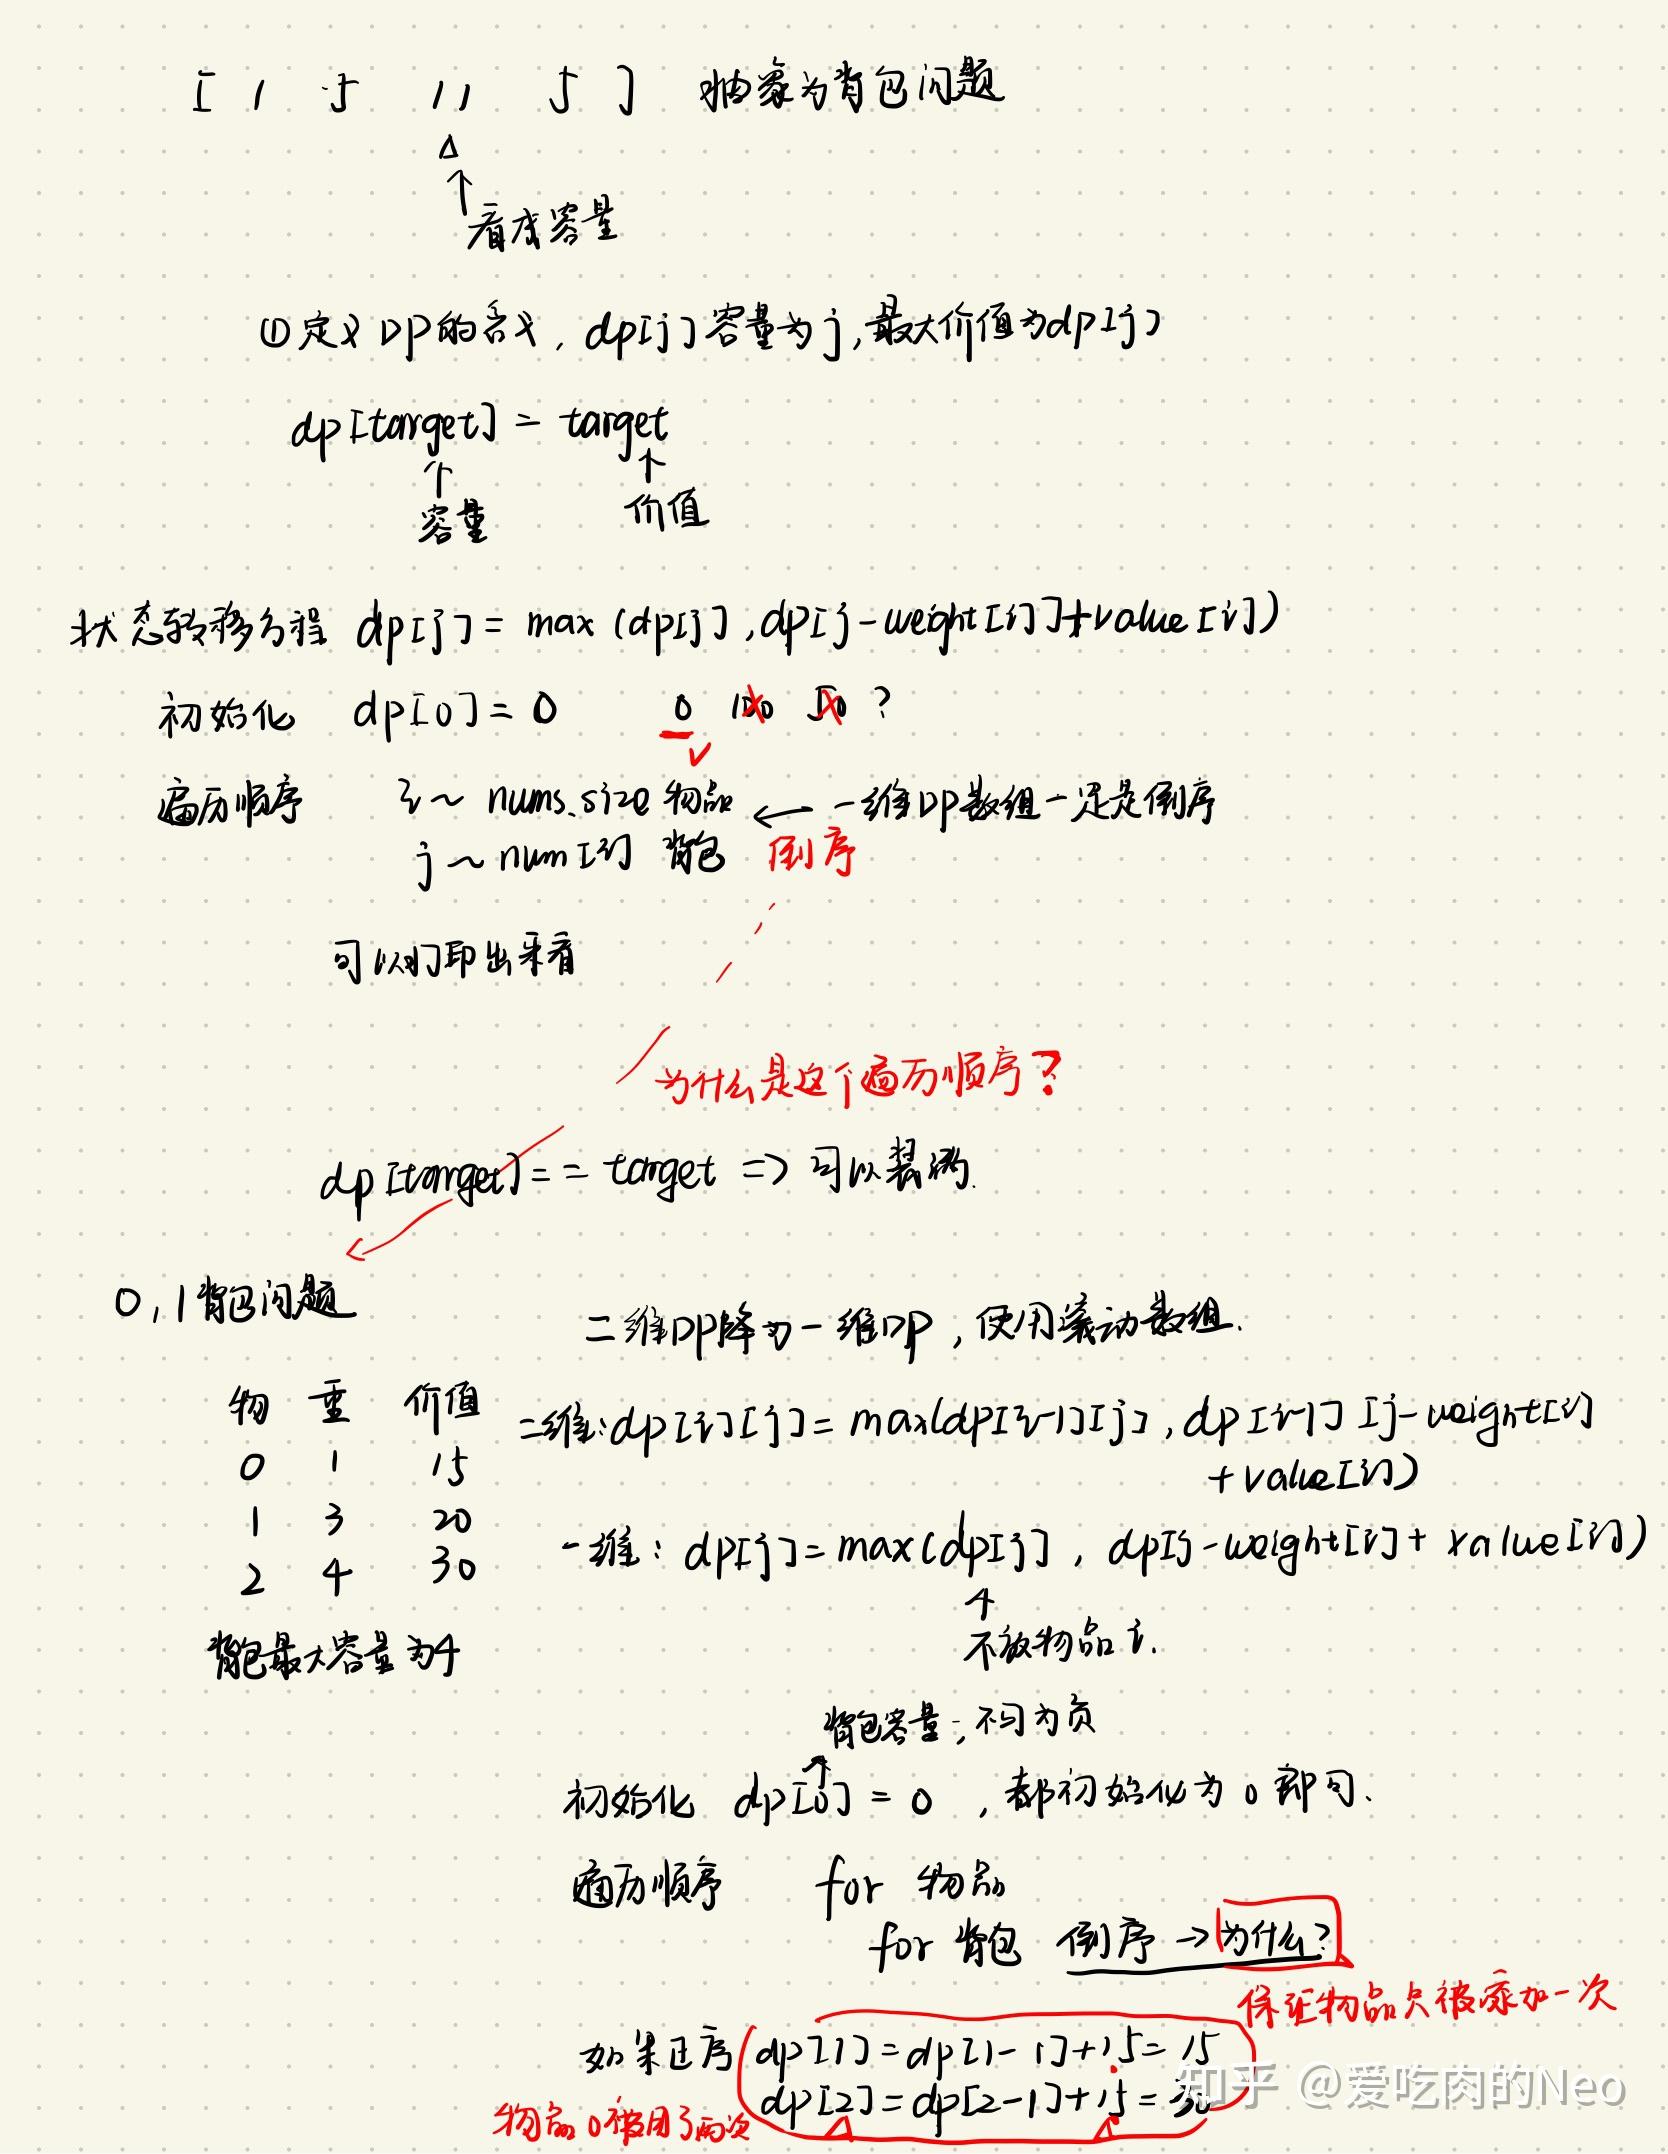 [ 1 5 11 5 ] 抽象为背包问题
看成容量
①定义DP的含义, dp[j]容量为j,最大价值为dp[j]
dp[target] = target
容量 价值
状态转移方程 dp[j] = max (dp[j], dp[j-weight[i]]+value[i])
初始化 dp[0] = 0 0 100 50 ?
遍历顺序 i ~ nums.size 物品 ← 一维DP数组一定是倒序
j ~ num[i] 背包 倒序
可以打印出来看
为什么是这个遍历顺序?
dp[target] == target => 可以装满.
0,1背包问题
二维DP降为一维DP, 使用滚动数组.
物 重 价值
0 1 15
1 3 20
2 4 30
背包最大容量为4
二维: dp[i][j] = max(dp[i-1][j], dp[i-1][j-weight[i]
+value[i])
一维: dp[j] = max(dp[j], dp[j-weight[i]+ value[i])
不放物品i.
背包容量, 不可为负
初始化 dp[0] = 0 , 都初始化为0即可.
遍历顺序 for 物品
for 背包 倒序 → 为什么?
保证物品只被添加一次
如果正序 dp[1] = dp[1-1]+15 = 15
dp[2] = dp[2-1]+15 = 30
物品0被用了两次
知乎 @爱吃肉的Neo